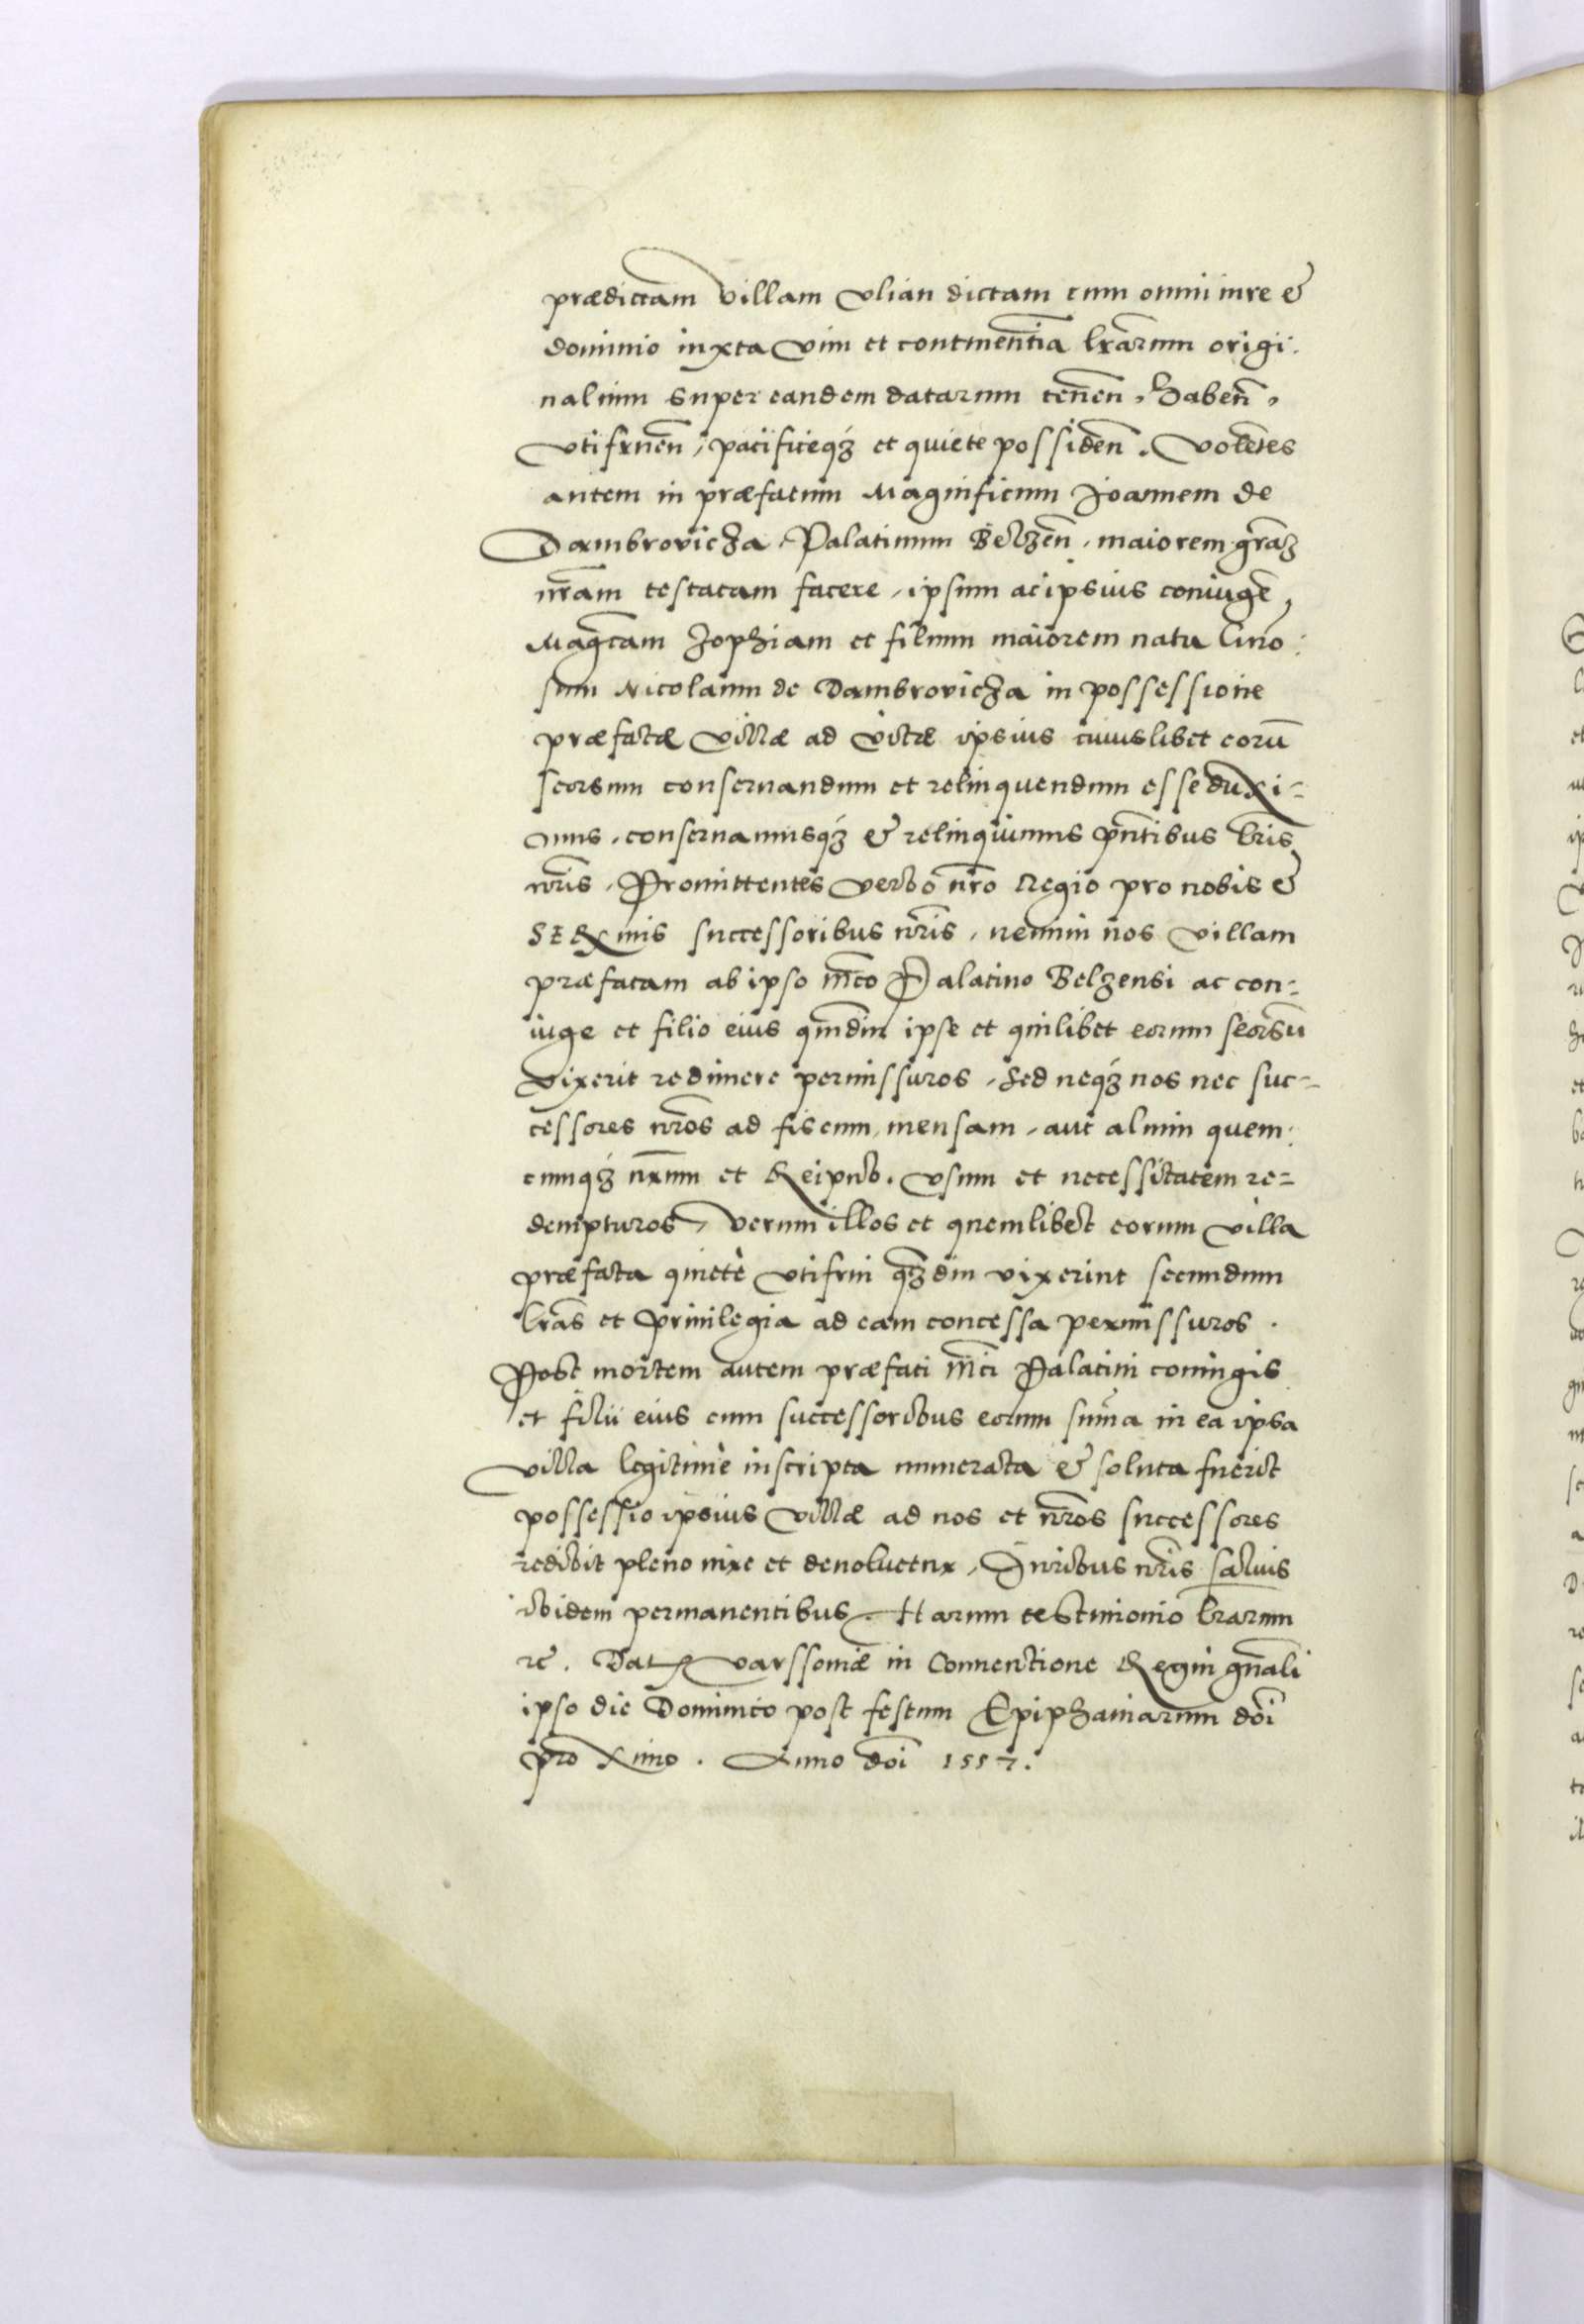 prædictam villam Vlian dictam cum omni iure &
dominio iuxta vim et continentia lrarum origi:
nalium super eandem datarum tenen, haben,
vtifruen, pacificeqʒ et quiete possiden. Volentes
autem in præfatum Magnificum Joannem de
Dambrovicza, Palatinum Belzen, maiorem graʒ
nram testatam facere, ipsum ac ipsius coniuge,
Magcam Zophiam et filium maiorem natu Gnō:
sum Nicolaum de Dambrovicza in possessione
præfatæ villæ ad vitæ ipsius cuiuslibet eorū
seorsum conseruandum et relinquendum esse duxi-
mus, conseruamusqʒ & relinquimus pntibus lris
nris, Promittentes verbo nro Regio pro nobis &
SERxmis successoribus nris, nemini nos villam
præfatam ab ipso Mco Palatino Belzensi ac con-
iuge et filio eius qmdiu ipse et quilibet eorum seorsū
vixerit redimere permissuros, Sed neqʒ nos nec suc-
cessores nros ad fiscum, mensam, aut alium quem:
cumqʒ nrum et Reipub. vsum et necessitatem re-
dempturos, verum illos et quemlibet eorum villa
præfata quietè vtifrui qʒdiu vixerint secundum
lras et priuilegia ad eam concessa permissuros.
Post mortem autem præfati Mci Palatini coniugis
et filii eius cum successoribus eorum suma in ea ipsa
villa legitimè inscripta numerata & soluta fuerit
possessio ipsius villæ ad nos et nros successores
redibit pleno iure et deuoluetur, Juribus nris saluis
ibidem permanentibus, Harum testimonio lrarum
rc. Dat Varssouiæ in Conuentione Regni gnali
ipso die Dominico post festum Epiphaniarum doi
proximo. Anno doi 1557.